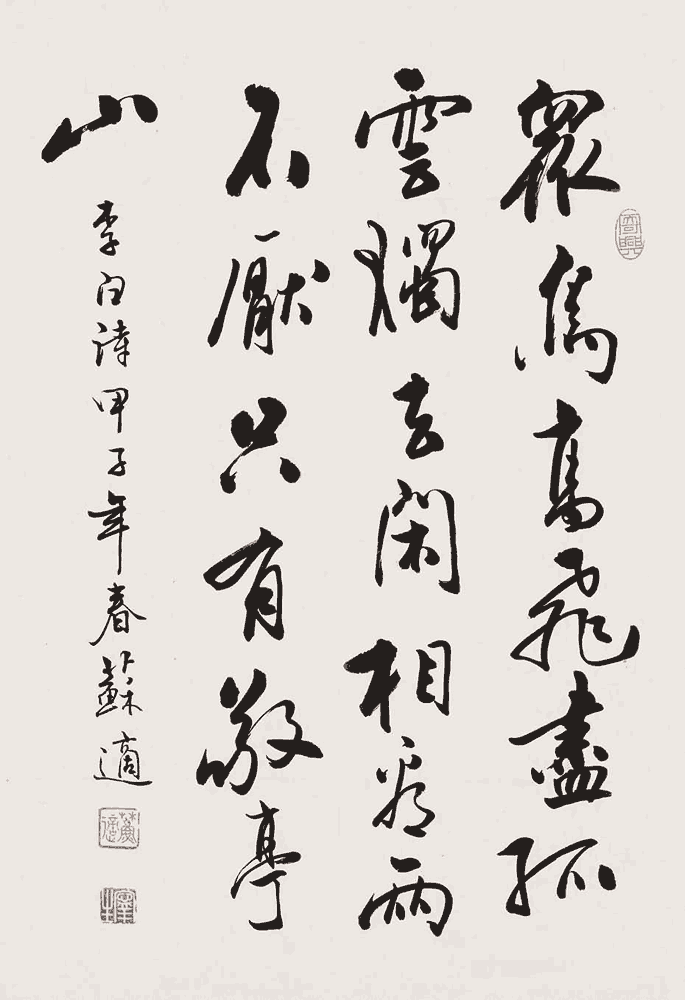 眾鳥高飛盡孤
雲獨去閑相看兩
不厭只有敬亭
山
李白詩甲子年春蘇適
蘇適